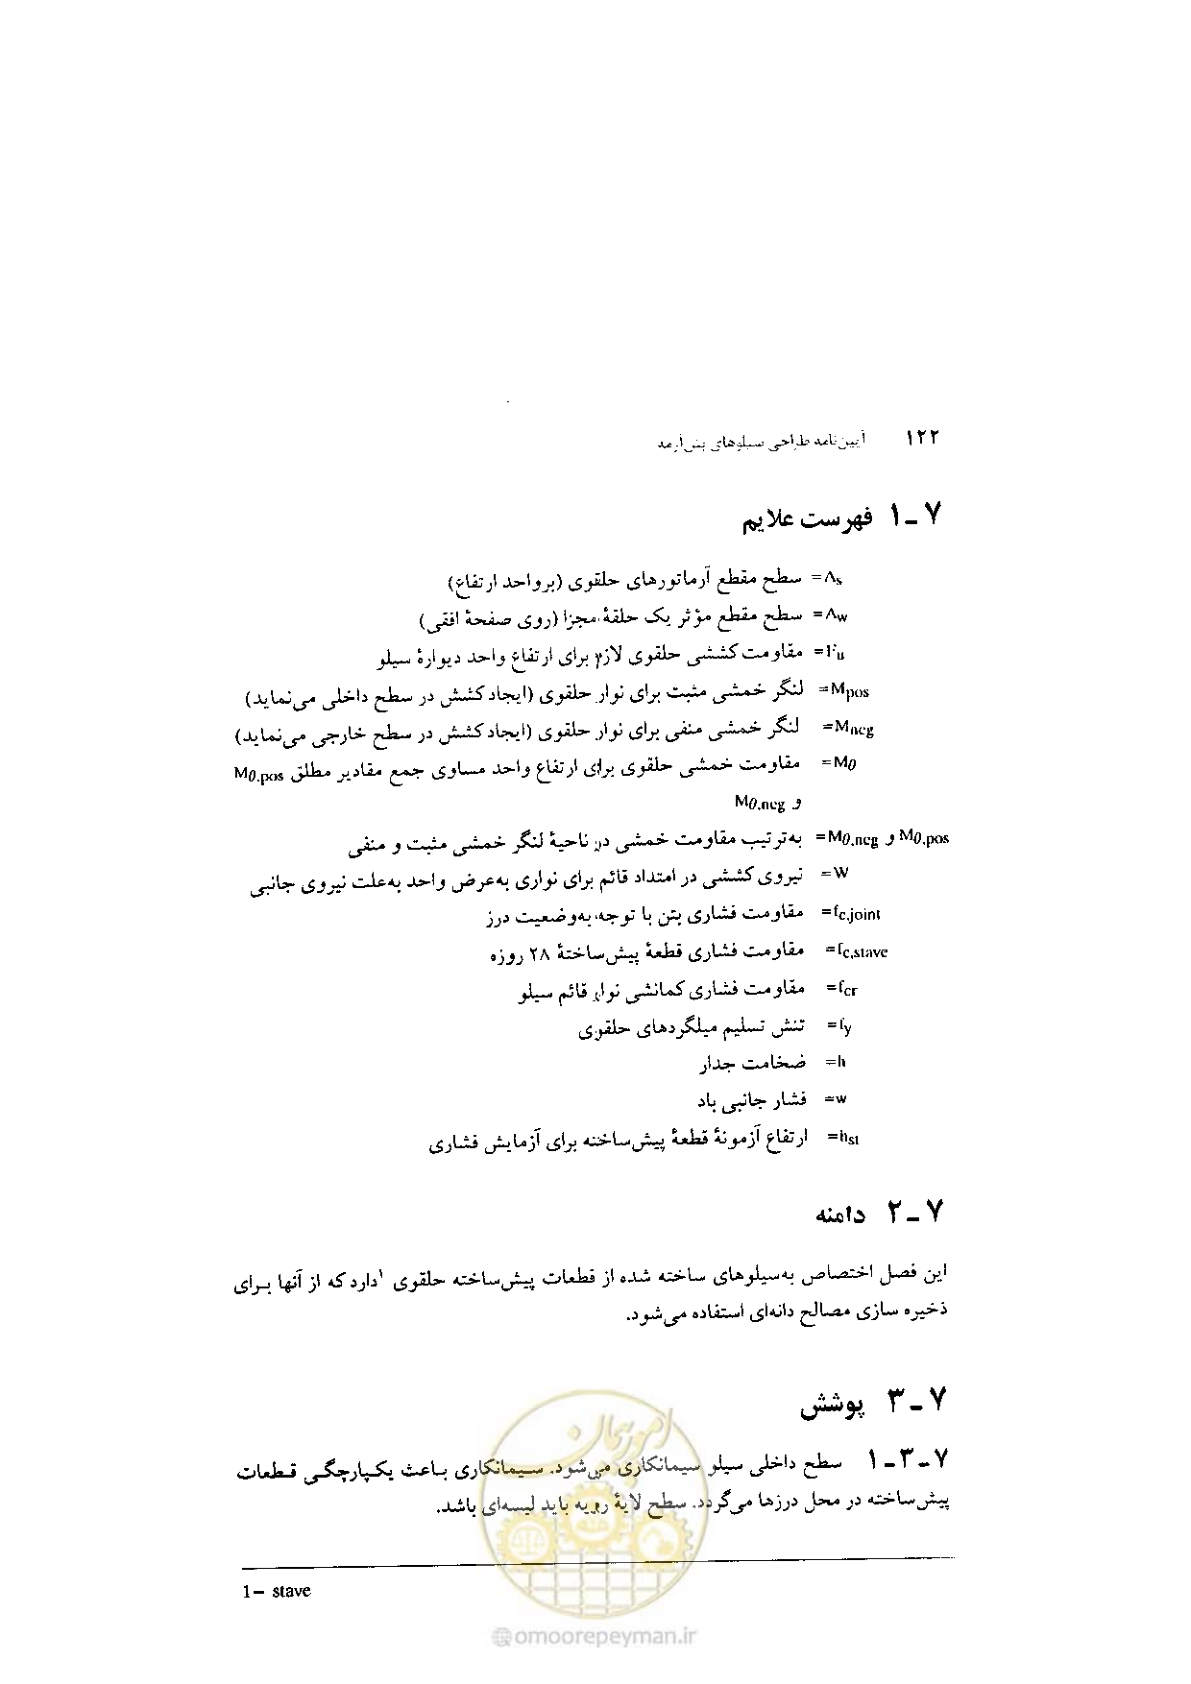 ۱۲۲ آیین‌نامه طراحی سیلوهای بتن‌آرمه
۷ـ۱ فهرست علایم
As= سطح مقطع آرماتورهای حلقوی (برواحد ارتفاع)
Aw= سطح مقطع مؤثر یک حلقهٔ مجزا (روی صفحهٔ افقی)
Fu= مقاومت کششی حلقوی لازم برای ارتفاع واحد دیوارهٔ سیلو
Mpos= لنگر خمشی مثبت برای نوار حلقوی (ایجاد کشش در سطح داخلی می‌نماید)
Mneg= لنگر خمشی منفی برای نوار حلقوی (ایجاد کشش در سطح خارجی می‌نماید)
Mθ= مقاومت خمشی حلقوی برای ارتفاع واحد مساوی جمع مقادیر مطلق Mθ,pos
و Mθ,neg
Mθ,pos و Mθ,neg= به‌ترتیب مقاومت خمشی در ناحیهٔ لنگر خمشی مثبت و منفی
W= نیروی کششی در امتداد قائم برای نواری به‌عرض واحد به‌علت نیروی جانبی
fc,joint= مقاومت فشاری بتن با توجه به‌وضعیت درز
fc,stave= مقاومت فشاری قطعهٔ پیش‌ساختهٔ ۲۸ روزه
fcr= مقاومت فشاری کمانشی نوار قائم سیلو
fy= تنش تسلیم میلگردهای حلقوی
h= ضخامت جدار
w= فشار جانبی باد
hst= ارتفاع آزمونهٔ قطعهٔ پیش‌ساخته برای آزمایش فشاری
۷ـ۲ دامنه
این فصل اختصاص به‌سیلوهای ساخته شده از قطعات پیش‌ساخته حلقوی ۱دارد که از آنها بـرای
ذخیره سازی مصالح دانه‌ای استفاده می‌شود.
۷ـ۳ پوشش
۷ـ۳ـ۱ سطح داخلی سیلو سیمانکاری می‌شود. سـیمانکاری بـاعث یکـپارچگـی قـطعات
پیش‌ساخته در محل درزها می‌گردد. سطح لایهٔ رویه باید لیسه‌ای باشد.
1– stave
امور پیمان
@omoorepeyman.ir